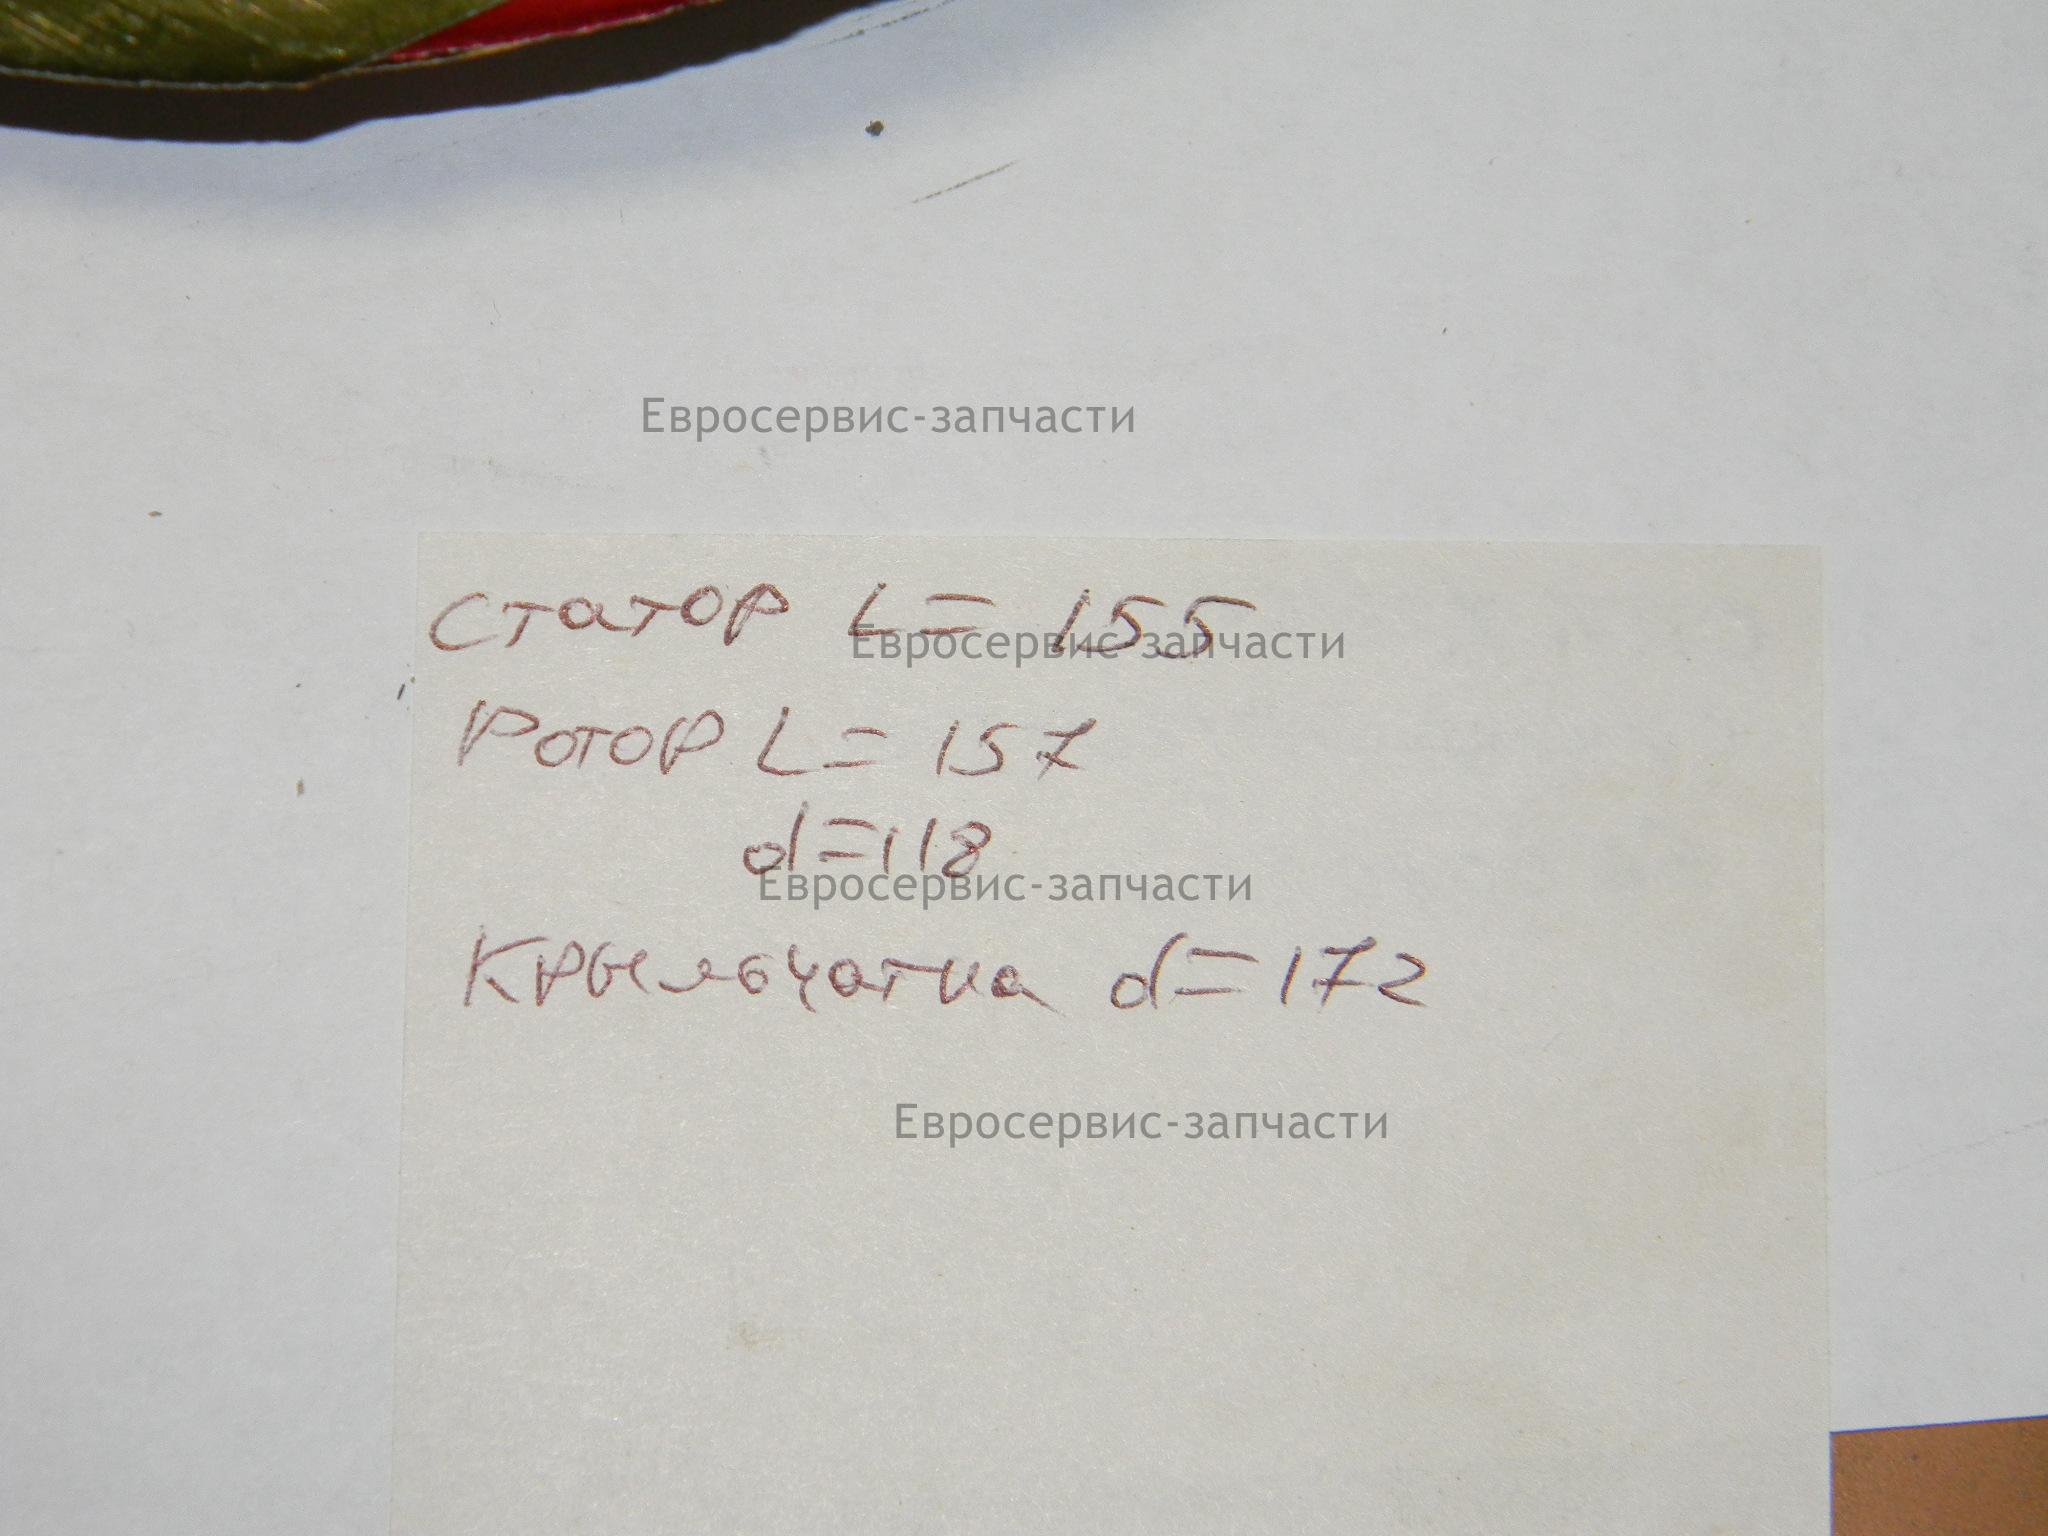 Евросервис-запчасти
Статор L = 155
Евросервис-запчасти
Ротор L = 157
d = 118
Евросервис-запчасти
Крыльчатка d = 172
Евросервис-запчасти